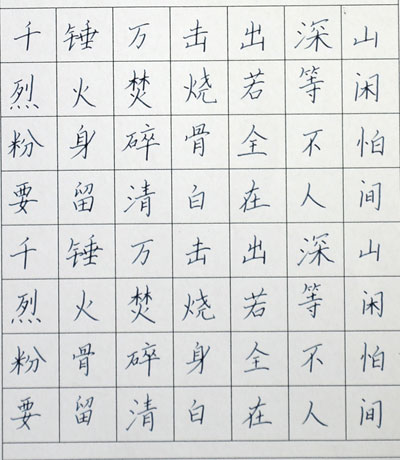 千锤万击出深山
烈火焚烧若等闲
粉身碎骨全不怕
要留清白在人间
千锤万击出深山
烈火焚烧若等闲
粉骨碎身全不怕
要留清白在人间